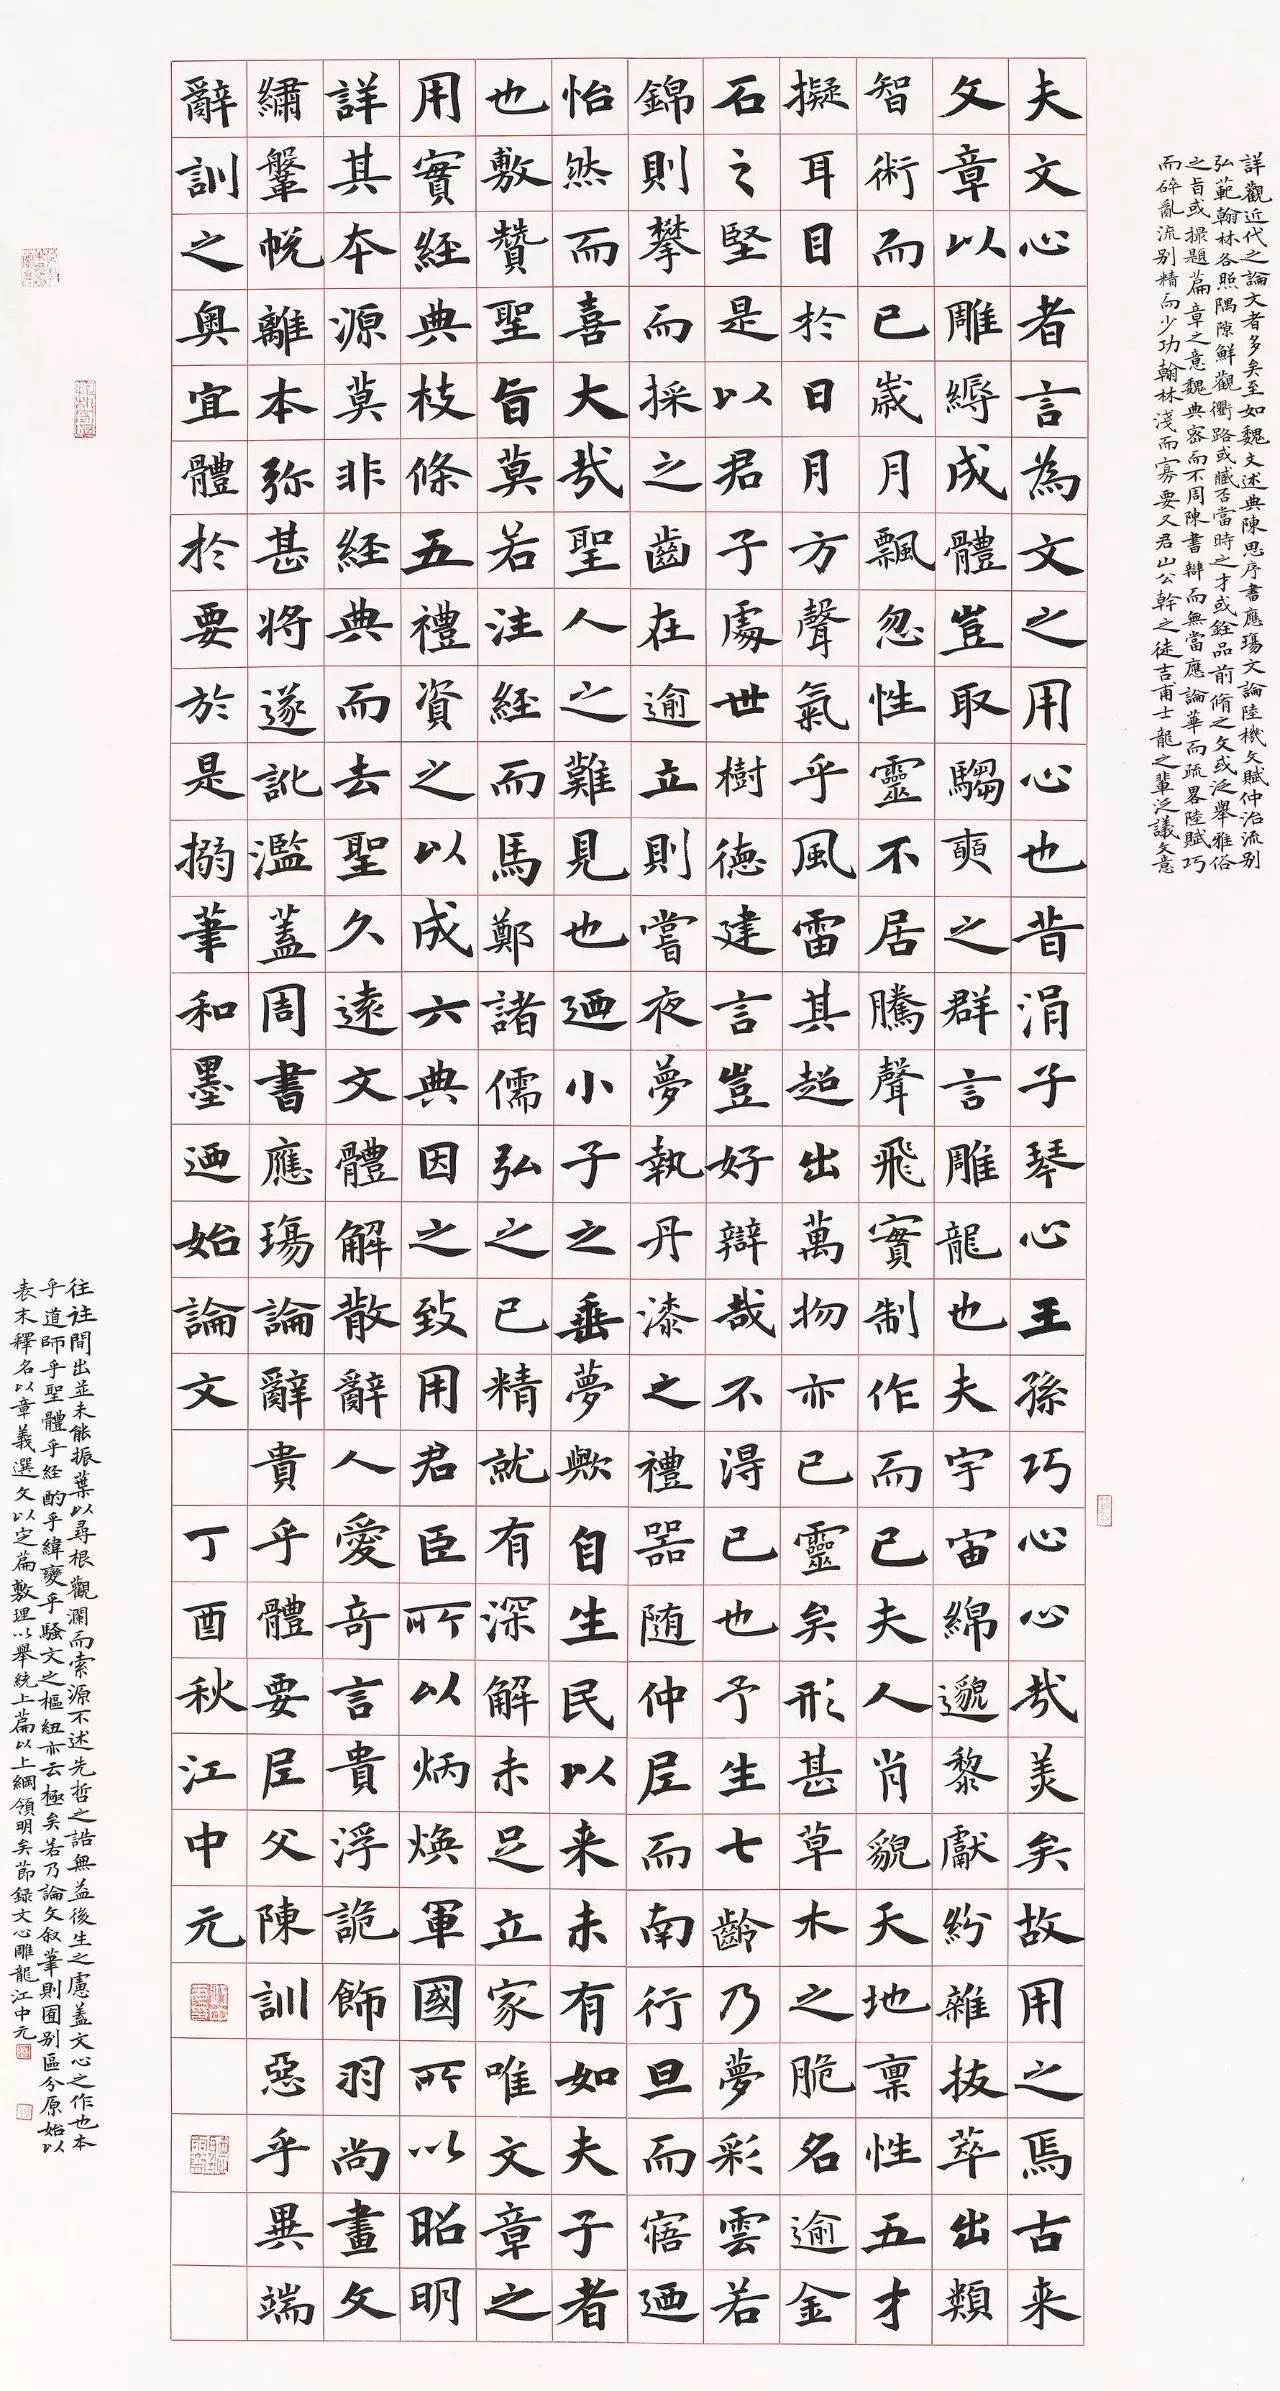 夫文心者言為文之用心也昔涓子琴心王孫巧心心哉美矣故用之焉古来
文章以雕縟成體豈取騶奭之群言雕龍也夫宇宙綿邈黎獻紛雜拔萃出類
智術而已歲月飄忽性靈不居騰聲飛實制作而已夫人肖貌天地稟性五才
擬耳目於日月方聲氣乎風雷其超出萬物亦已靈矣形甚草木之脆名逾金
石之堅是以君子處世樹德建言豈好辯哉不得已也予生七齡乃夢彩雲若
錦則攀而採之齒在逾立則嘗夜夢執丹漆之禮器随仲尼而南行旦而寤迺
怡然而喜大哉聖人之難見也迺小子之垂夢歟自生民以来未有如夫子者
也敷贊聖旨莫若注經而馬鄭諸儒弘之已精就有深解未足立家唯文章之
用實經典枝條五禮資之以成六典因之致用君臣所以炳煥軍國所以昭明
詳其本源莫非經典而去聖久遠文體解散辭人愛奇言貴浮詭飾羽尚畫文
繡鞶帨離本弥甚將遂訛濫蓋周書應瑒論辭貴乎體要尼父陳訓惡乎異端
辭訓之奥宜體於要於是搦筆和墨迺始論文 丁酉秋江中元
詳觀近代之論文者多矣至如魏文述典陳思序書應瑒文論陸機文賦仲治流别
弘範翰林各照隅隙鮮觀衢路或臧否當時之才或銓品前脩之文或泛舉雅俗
之旨或撮題篇章之意魏典密而不周陳書辯而無當應論華而疏畧陸賦巧
而碎亂流别精而少功翰林淺而寡要又君山公幹之徒吉甫士龍之輩泛議文意
往往間出並未能振葉以尋根觀瀾而索源不述先哲之誥無益後生之慮蓋文心之作也本
乎道師乎聖體乎經酌乎緯變乎騷文之樞紐亦云極矣若乃論文叙筆則囿别區分原始以
表末釋名以章義選文以定篇敷理以舉統上篇以上綱領明矣節録文心雕龍江中元